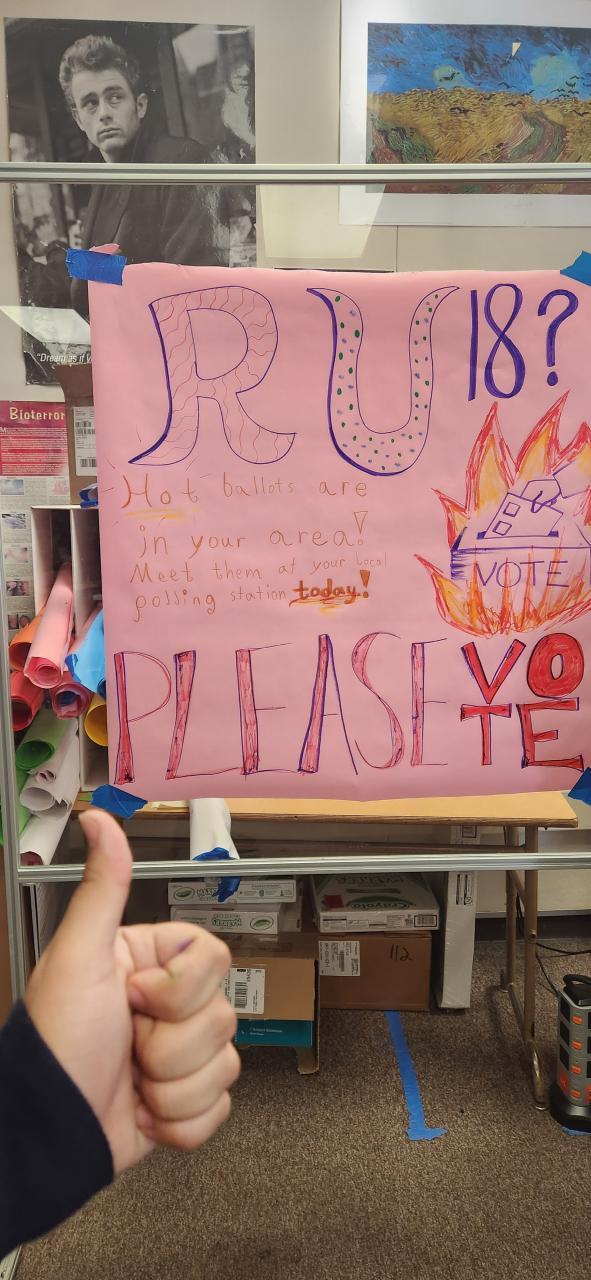 "Dream as if
Bioterror
R U 18?
Hot ballots are
in your area!
Meet them at your local
polling station today!
VOTE
PLEASE VO
TE
Crayola
112